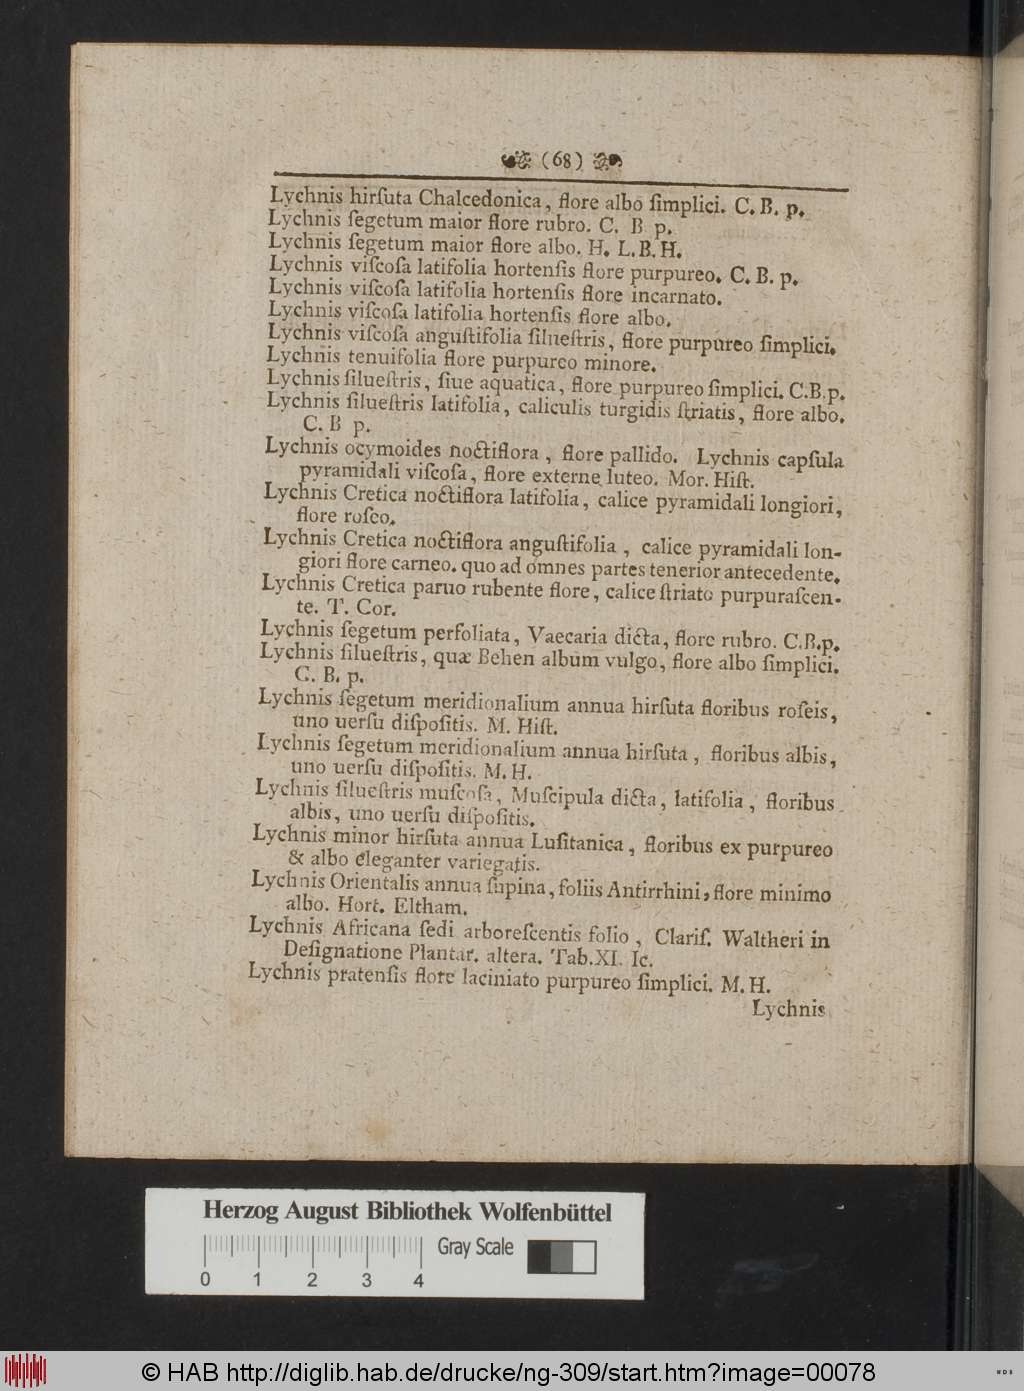 (68)
Lychnis hirſuta Chalcedonica, flore albo ſimplici. C. B. p.
Lychnis ſegetum maior flore rubro. C. B p.
Lychnis ſegetum maior flore albo. H. L. B. H.
Lychnis viſcoſa latifolia hortenſis flore purpureo. C. B. p.
Lychnis viſcoſa latifolia hortenſis flore incarnato.
Lychnis viſcoſa latifolia hortenſis flore albo.
Lychnis viſcoſa anguſtifolia ſilueſtris, flore purpureo ſimplici.
Lychnis tenuifolia flore purpureo minore.
Lychnis ſilueſtris, ſiue aquatica, flore purpureo ſimplici. C.B.p.
Lychnis ſilueſtris latifolia, caliculis turgidis ſtriatis, flore albo.
C. B p.
Lychnis ocymoides noctiflora, flore pallido. Lychnis capſula
pyramidali viſcoſa, flore externe luteo. Mor. Hiſt.
Lychnis Cretica noctiflora latifolia, calice pyramidali longiori,
flore roſeo.
Lychnis Cretica noctiflora anguſtifolia, calice pyramidali lon-
giori flore carneo. quo ad omnes partes tenerior antecedente.
Lychnis Cretica paruo rubente flore, calice ſtriato purpuraſcen-
te. T. Cor.
Lychnis ſegetum perfoliata, Vaecaria dicta, flore rubro. C.B.p.
Lychnis ſilueſtris, quæ Behen album vulgo, flore albo ſimplici.
C. B. p.
Lychnis ſegetum meridionalium annua hirſuta floribus roſeis,
uno uerſu diſpoſitis. M. Hiſt.
Lychnis ſegetum meridionalium annua hirſuta, floribus albis,
uno uerſu diſpoſitis. M. H.
Lychnis ſilueſtris muſcoſa, Muſcipula dicta, latifolia, floribus
albis, uno uerſu diſpoſitis.
Lychnis minor hirſuta annua Luſitanica, floribus ex purpureo
& albo eleganter variegatis.
Lychnis Orientalis annua ſupina, foliis Antirrhini, flore minimo
albo. Hort. Eltham.
Lychnis Africana ſedi arboreſcentis folio, Clariſ. Waltheri in
Deſignatione Plantar. altera. Tab. XI. Ic.
Lychnis pratenſis flore laciniato purpureo ſimplici. M. H.
Lychnis
Herzog August Bibliothek Wolfenbüttel
Gray Scale
0 1 2 3 4
© HAB http://diglib.hab.de/drucke/ng-309/start.htm?image=00078